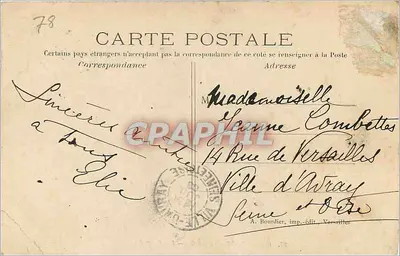 78
CARTE POSTALE
Certains pays étrangers n'acceptant pas la correspondance de ce côté se renseigner à la Poste
Correspondance
Adresse
Sincères
à tous
Elie
Mademoiselle
Jeanne Combettes
14 Rue de Versailles
Ville d'Avray
Seine et Oise
CPAPHIL
A. Bourdier, imp.-édit., Versailles